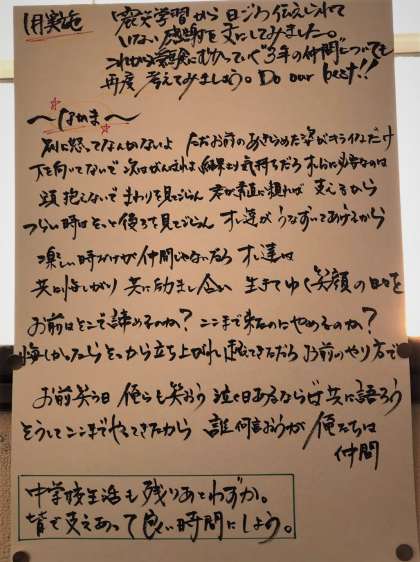 1月実施
震災学習から日ごろ伝えられて
いない感謝を文にしてみました。
これから受験にむかっていく"3年の仲間"についても
再度考えてみましょう。Do our best!!
～なかま～
別に怒ってなんかないよ ただお前のあきらめた姿がキライなだけ
下を向いてないで 次はがんばれよ 結果より気持ちだろ オレらに必要なのは
頭抱えないで まわりを見てごらん 君が素直に頼れば 支えるから
つらい時はそっと後ろを見てごらん オレ達がうなずいてあげるから
楽しい時だけが仲間じゃないだろ オレ達は
共に悔しがり 共に励まし合い 生きてゆく笑顔の日々を
お前はそこで諦めるのか？ ここまで来たのにやめるのか？
悔しかったらそっから立ち上がれ 越えてきただろ お前のやり方で
お前笑う日 俺らも笑おう 泣く日あるならば共に語ろう
そうしてここまでやってきたから 誰何言おうが 俺たちは
仲間
中学校生活も残りあとわずか。
皆で支えあって良い時間にしよう。